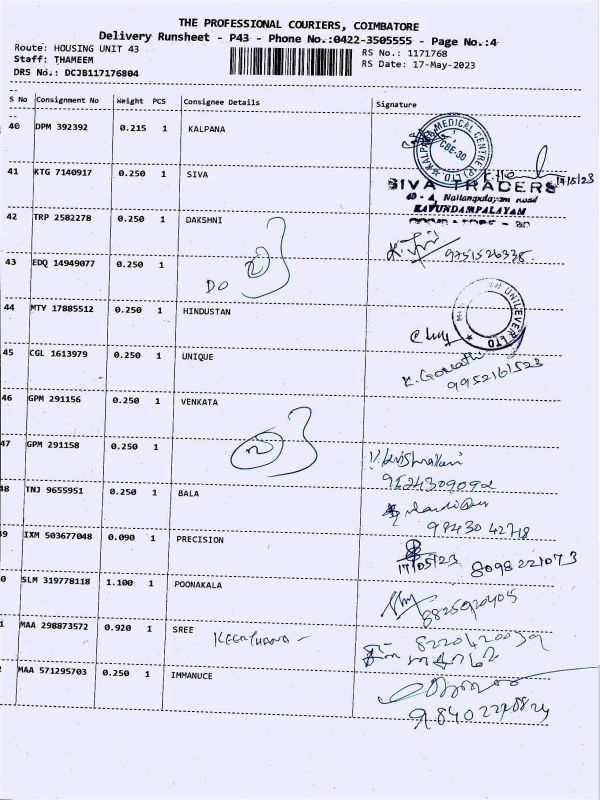 THE PROFESSIONAL COURIERS, COIMBATORE
Delivery Runsheet - P43 - Phone No.:0422-3505555 - Page No.:4
Route: HOUSING UNIT 43
RS No.: 1171768
Staff: THAMEEM
RS Date: 17-May-2023
DRS No.: DCJB117176804
S No Consignment No Weight PCS Consignee Details Signature
40 DPM 392392 0.215 1 KALPANA
KALPANA MEDICAL CENTRE (P) LTD
CBE-30
41 KTG 7140917 0.250 1 SIVA
SIVA TRADERS
Nallampalayam Road
KAVUNDAMPALAYAM
42 TRP 2582278 0.250 1 DAKSHNI
9751526338
43 EDQ 14949077 0.250 1 DO
44 MTY 17885512 0.250 1 HINDUSTAN
UNILEVER LTD
45 CGL 1613979 0.250 1 UNIQUE
9952161523
46 GPM 291156 0.250 1 VENKATA
47 GPM 291158 0.250 1
48 TNJ 9655951 0.250 1 BALA
9843042718
49 IXM 503677048 0.090 1 PRECISION
17/05/23 8098221073
0 SLM 319778118 1.100 1 POONAKALA
MAA 298873572 0.920 1 SREE KEERTHANA
MAA 571295703 0.250 1 IMMANUCE